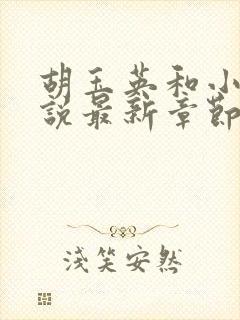 胡玉英和小
說最新章節
淺笑安然